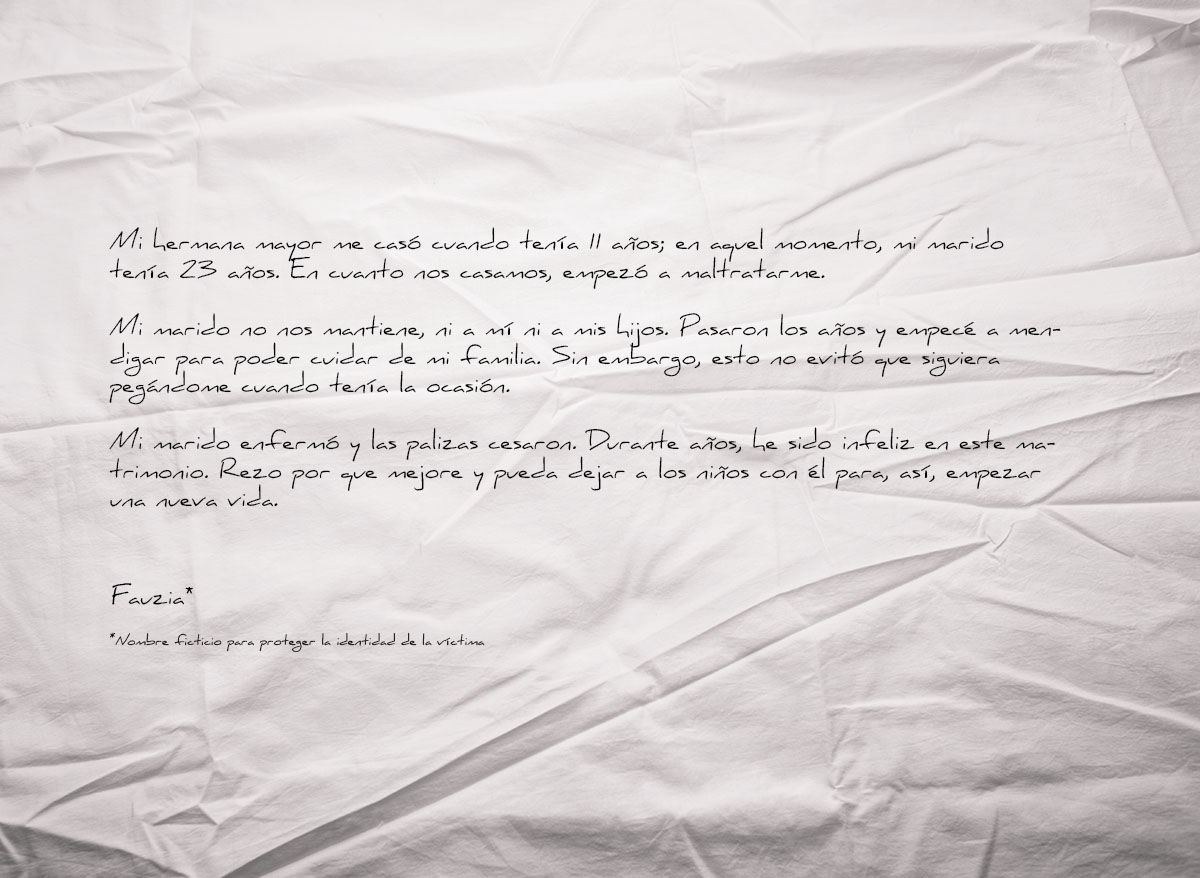 Mi hermana mayor me casó cuando tenía 11 años; en aquel momento, mi marido
tenía 23 años. En cuanto nos casamos, empezó a maltratarme.
Mi marido no nos mantiene, ni a mí ni a mis hijos. Pasaron los años y empecé a men-
digar para poder cuidar de mi familia. Sin embargo, esto no evitó que siguiera
pegándome cuando tenía la ocasión.
Mi marido enfermó y las palizas cesaron. Durante años, he sido infeliz en este ma-
trimonio. Rezo por que mejore y pueda dejar a los niños con él para, así, empezar
una nueva vida.
Fauzia*
*Nombre ficticio para proteger la identidad de la víctima